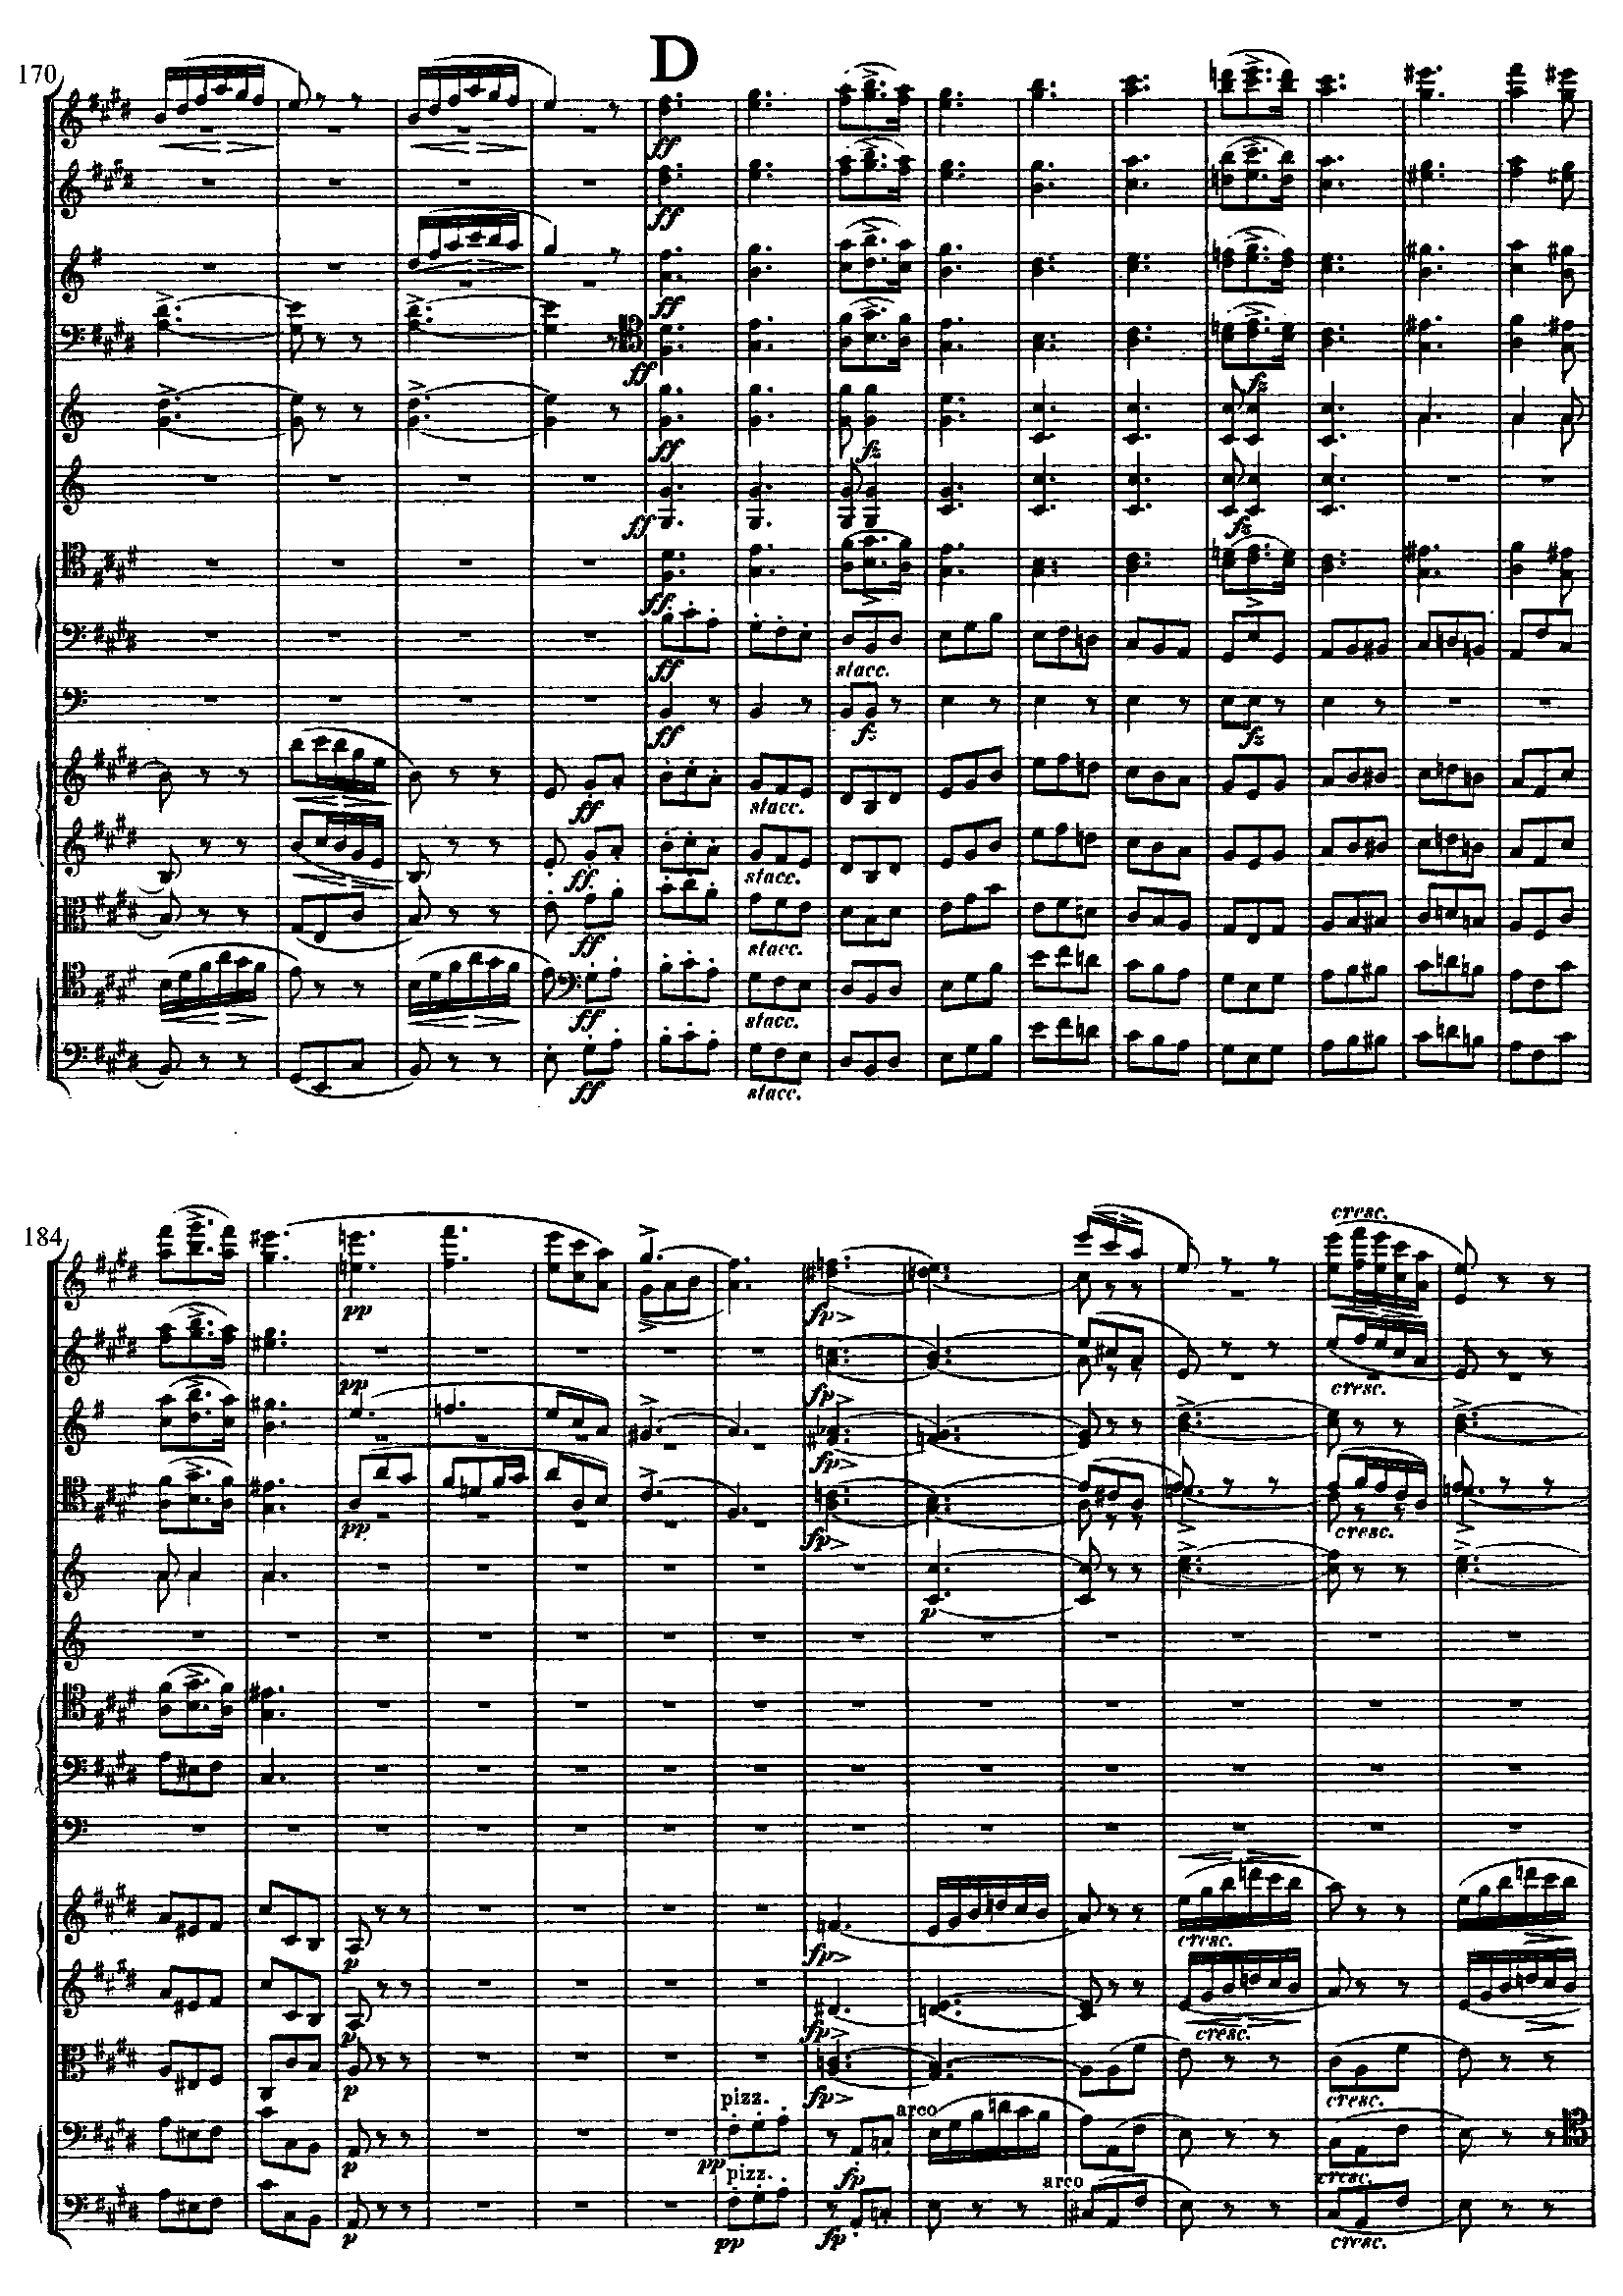 D
170
ff
ff
ff
ff
ff fz fz
ff fz
ff
ff stacc.
ff fz fz
ff stacc.
ff stacc.
ff stacc.
ff stacc.
ff stacc.
184 cresc.
pp fp
pp fp cresc.
fp
pp fp cresc.
p
p fp cresc.
p fp cresc.
p fp cresc.
pizz. arco
p pp fp cresc.
pizz. arco
p pp fp cresc.